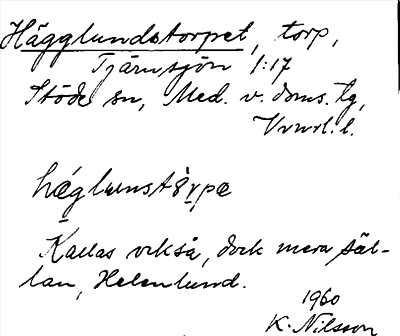 Hägglundstorpet, torp,
Tjärnsjön 1:17
Stöde sn, Med. v. doms. tg,
Vnrl. l.
hæglunstɷrpæ
Kallas också, dock mera säl-
lan, Helenlund.
1960
K. Nilsson